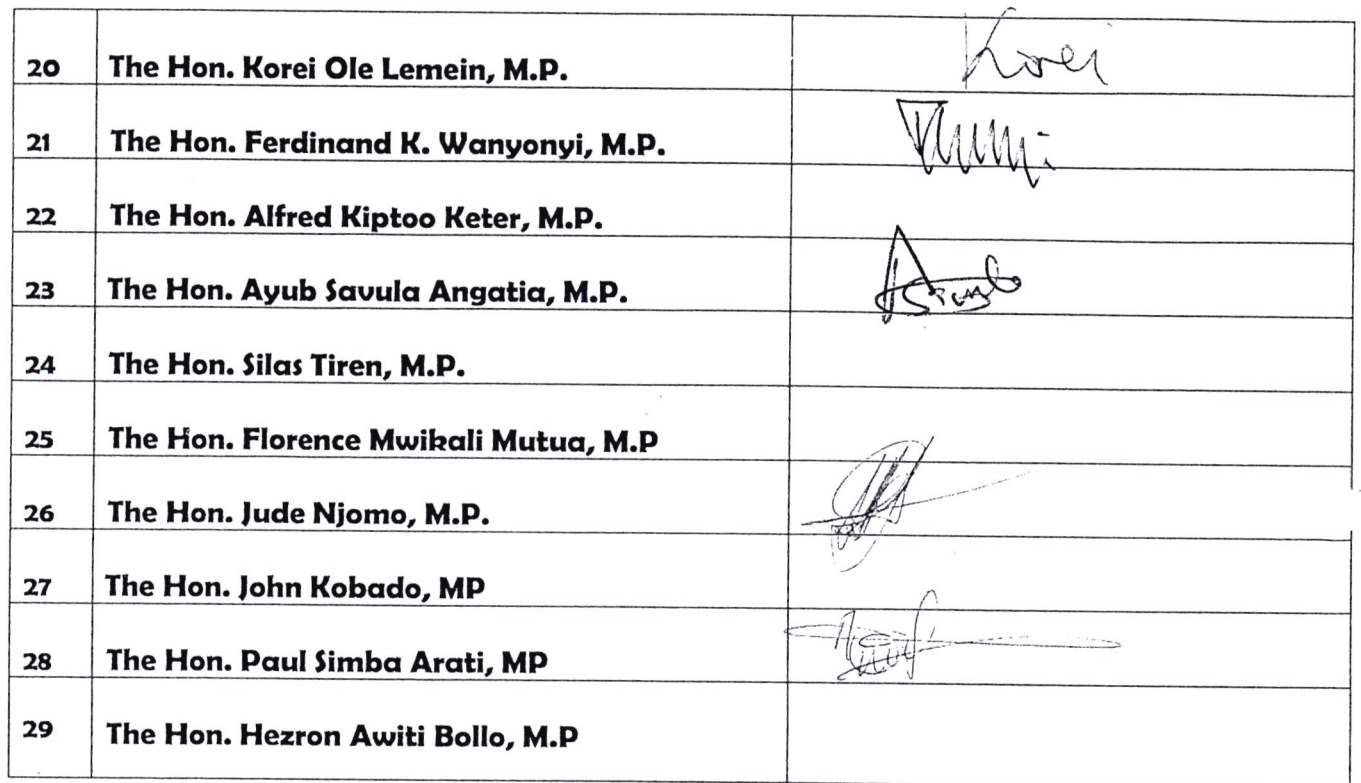 20 The Hon. Korei Ole Lemein, M.P. Korei
21 The Hon. Ferdinand K. Wanyonyi, M.P.
22 The Hon. Alfred Kiptoo Keter, M.P.
23 The Hon. Ayub Savula Angatia, M.P.
24 The Hon. Silas Tiren, M.P.
25 The Hon. Florence Mwikali Mutua, M.P
26 The Hon. Jude Njomo, M.P.
27 The Hon. John Kobado, MP
28 The Hon. Paul Simba Arati, MP
29 The Hon. Hezron Awiti Bollo, M.P